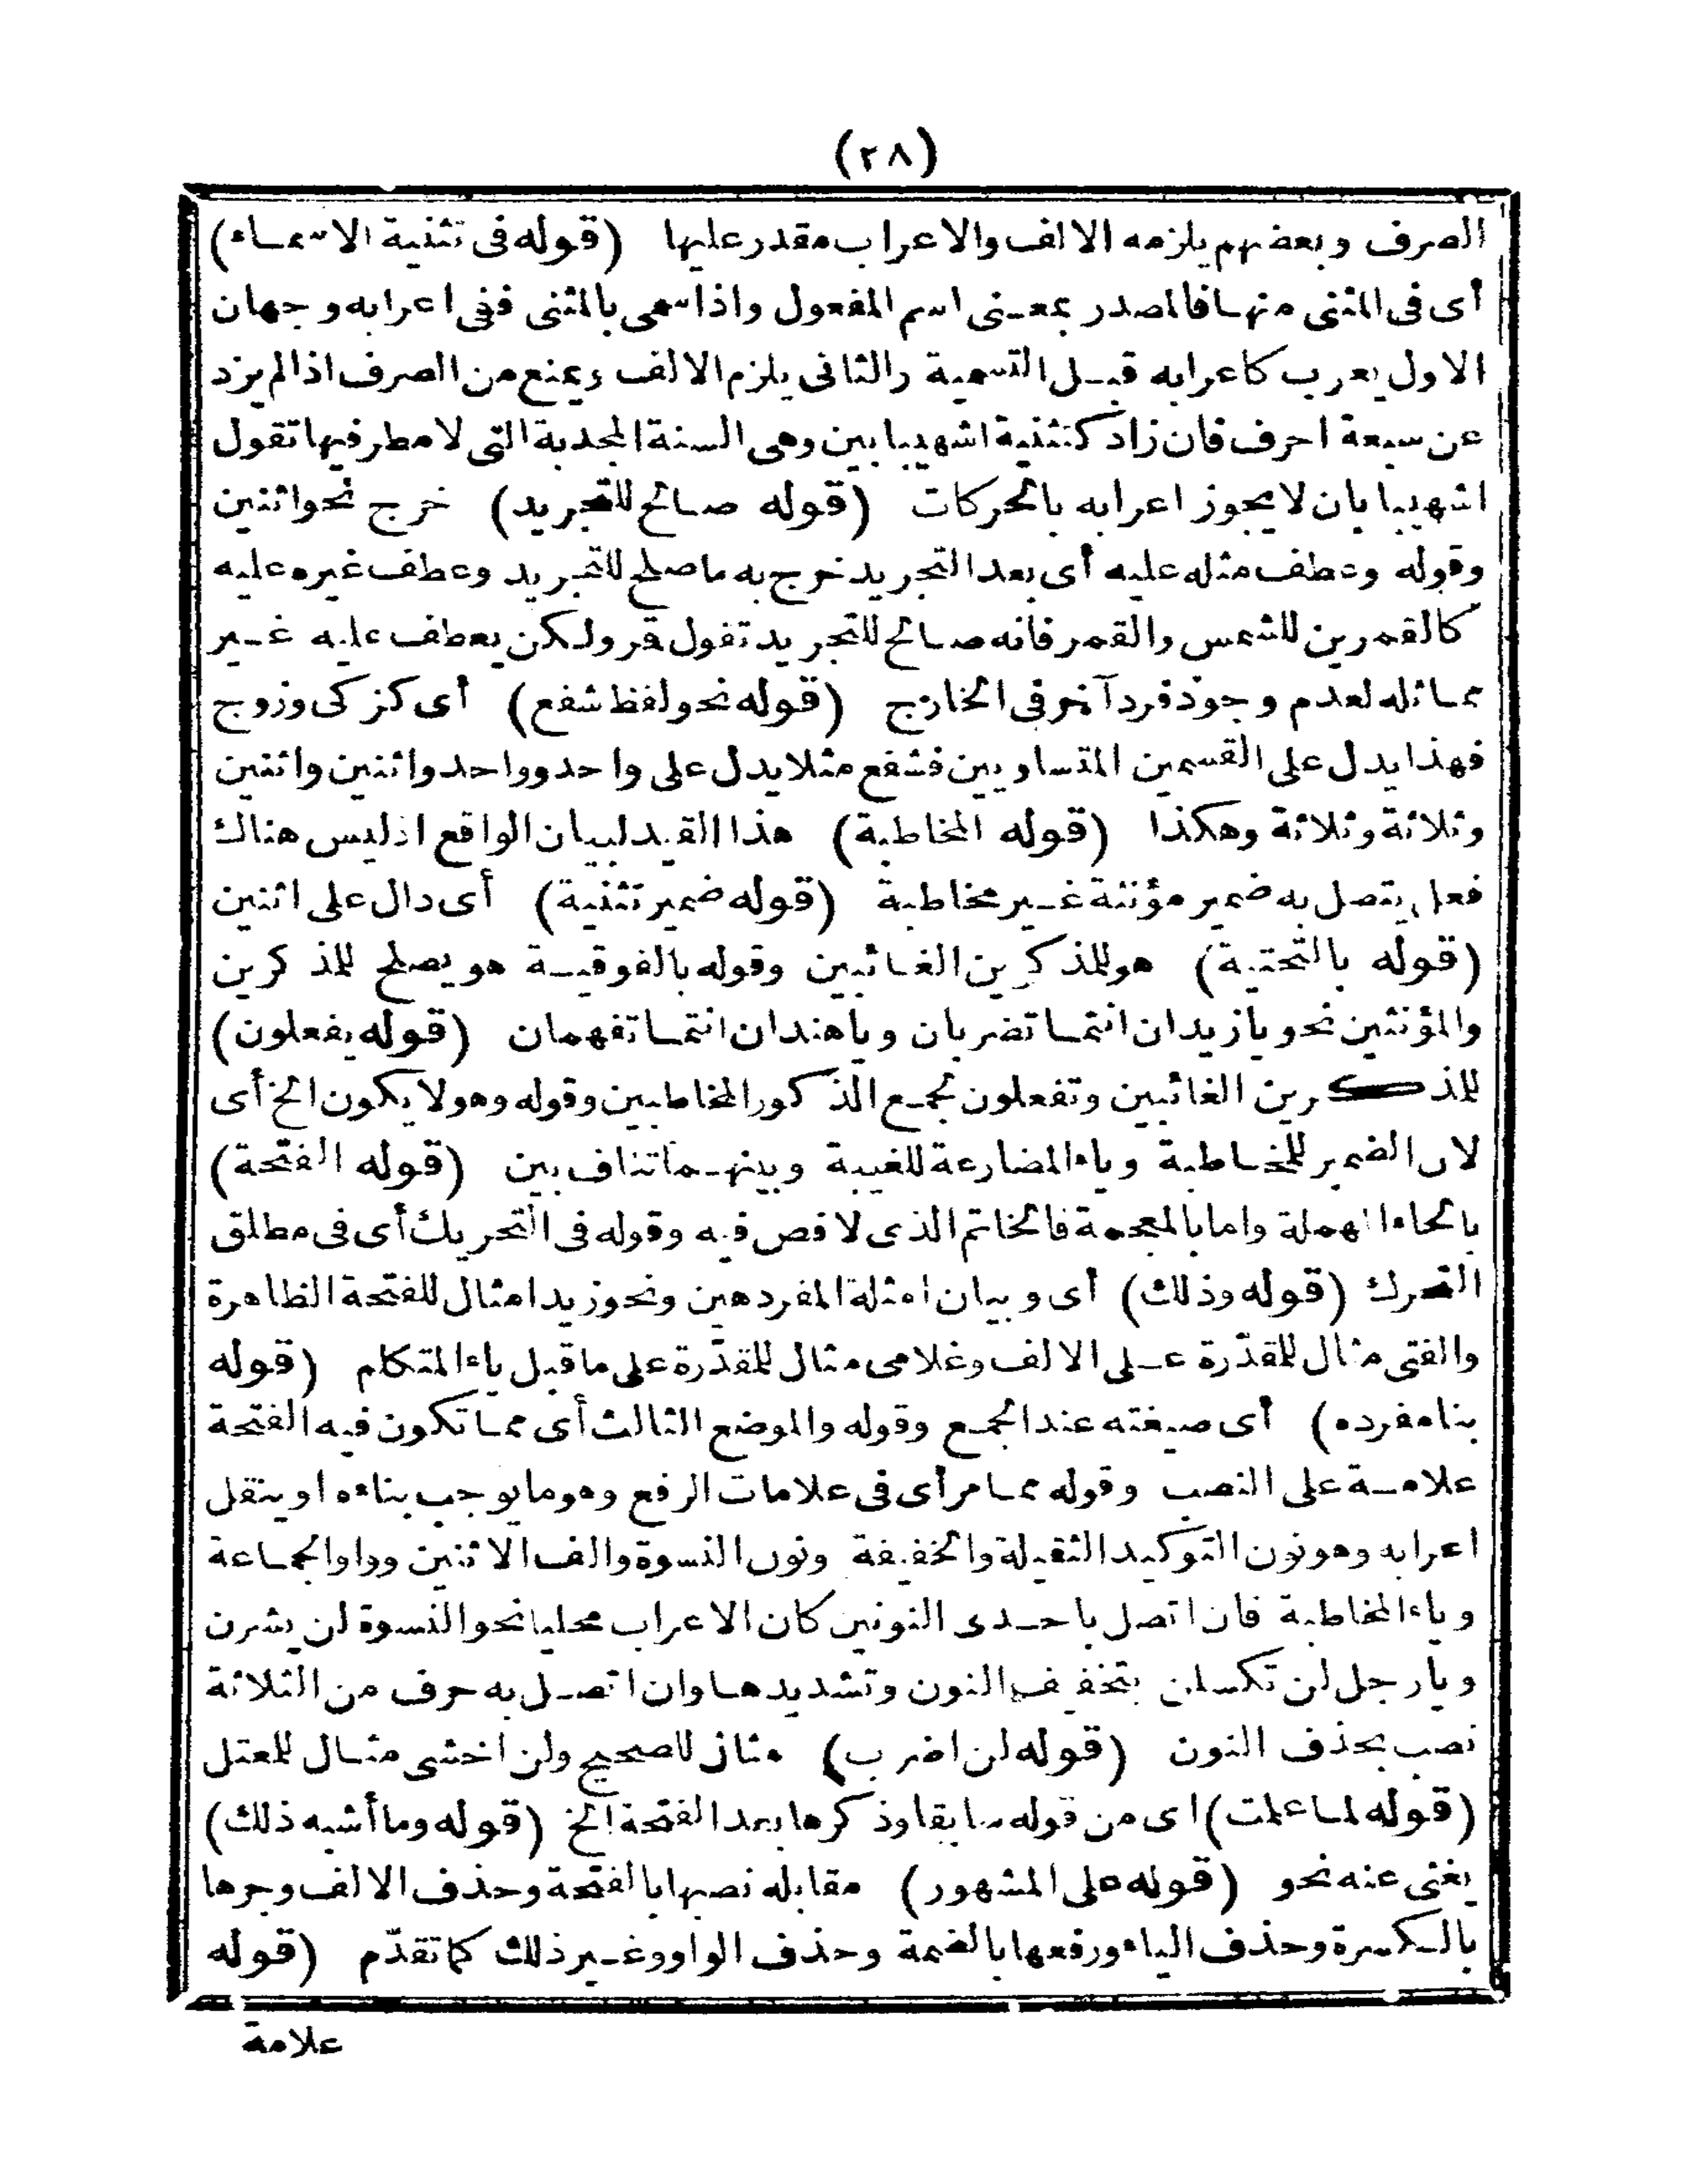 (٢٨)
الصرف وبعضهم يلزمه الالف والاعراب مقدر عليها (قوله فى تثنية الاسماء)
أى فى المثنى منها فالمصدر بمعنى اسم المفعول واذا سمى بالمثنى ففى اعرابه وجهان
الاول يعرب كاعرابه قبل التسمية والثانى يلزم الالف ويمنع من الصرف اذا لم يزد
عن سبعة احرف فان زاد كتثنية اشهيبابين وهى السنة المجدبة التى لا مطر فيها تقول
اشهيبابان لا يجوز اعرابه بالحركات (قوله صالح للتجريد) خرج نحو اثنين
وقوله وعطف مثله عليه أى بعد التجريد خرج به ما صلح للتجريد وعطف غيره عليه
كالقمرين للشمس والقمر فانه صالح للتجريد تقول قمر ولكن يعطف عليه غير
مماثله لعدم وجود فرد آخر فى الخارج (قوله نحو لفظ شفع) أى كزكى وزوج
فهذا يدل على القسمين المتساويين فشفع مثلا يدل على واحد وواحد واثنين واثنين
وثلاثة وثلاثة وهكذا (قوله المخاطبة) هذا القيد لبيان الواقع اذ ليس هناك
فعل يتصل به ضمير مؤنثة غير مخاطبة (قوله ضمير تثنية) أى دال على اثنين
(قوله بالتحتية) هو للمذكرين الغائبين وقوله بالفوقية هو يصلح للمذكرين
والمؤنثين نحو يا زيدان انتما تضربان ويا هندان انتما تفهمان (قوله يفعلون)
للمذكرين الغائبين وتفعلون لجمع الذكور المخاطبين وقوله وهو لا يكون الخ أى
لان الضمير للمخاطبة وياء المضارعة للغيبة وبينهما تناف بين (قوله الفتحة)
بالحاء المهملة واما بالمعجمة فالخاتم الذى لا فص فيه وقوله فى التحريك أى فى مطلق
التحرك (قوله وذلك) أى وبيان امثلة المفردهين ونحو زيدا مثال للفتحة الظاهرة
والفتى مثال للمقدّرة على الالف وغلامى مثال للمقدّرة على ما قبل ياء المتكلم (قوله
بناء مفرده) أى صيغته عند الجمع وقوله والموضع الثالث أى مما تكون فيه الفتحة
علامة على النصب وقوله مما مر أى فى علامات الرفع وهو ما يوجب بناءه او ينقل
اعرابه وهو نون التوكيد الثقيلة والخفيفة ونون النسوة والف الاثنين وواو الجماعة
وياء المخاطبة فان اتصل باحدى النونين كان الاعراب محليا نحو النسوة لن يشرن
ويا رجل لن تكسلن بتخفيف النون وتشديدها وان اتصل به حرف من الثلاثة
نصب بحذف النون (قوله لن اضرب) مثال للصحيح ولن اخشى مثال للمعتل
(قوله لما علمت) اى من قوله سابقا وذكرها بعد الفتحة الخ (قوله وما أشبه ذلك)
يغنى عنه نحو (قوله على المشهور) مقابله نصبها بالفتحة وحذف الالف وجرها
بالكسرة وحذف الياء ورفعها بالضمة وحذف الواو وغير ذلك كما تقدّم (قوله
علامة